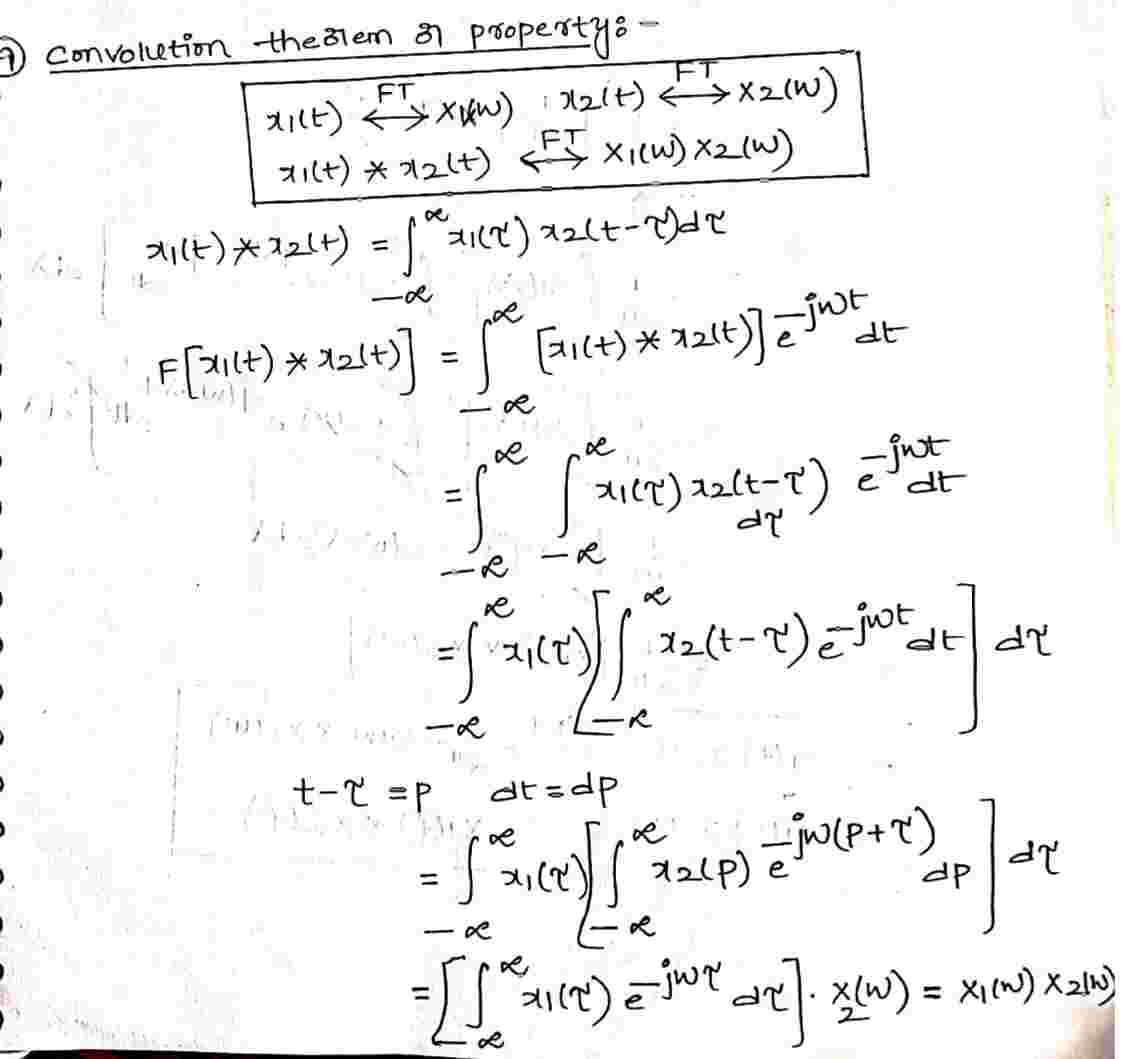 9) convolution theorem or property:-
x1(t) <-FT-> X1(w) ; x2(t) <-FT-> X2(w)
x1(t) * x2(t) <-FT-> X1(w) X2(w)
x1(t) * x2(t) = ∫_{-∞}^{∞} x1(τ) x2(t-τ)dτ
F[x1(t) * x2(t)] = ∫_{-∞}^{∞} [x1(t) * x2(t)] e^{-jwt} dt
= ∫_{-∞}^{∞} ∫_{-∞}^{∞} x1(τ) x2(t-τ) dτ e^{-jwt} dt
= ∫_{-∞}^{∞} x1(τ) [∫_{-∞}^{∞} x2(t-τ) e^{-jwt} dt] dτ
t-τ = p dt = dp
= ∫_{-∞}^{∞} x1(τ) [∫_{-∞}^{∞} x2(p) e^{-jw(p+τ)} dp] dτ
= [∫_{-∞}^{∞} x1(τ) e^{-jwτ} dτ] . X2(w) = X1(w) X2(w)